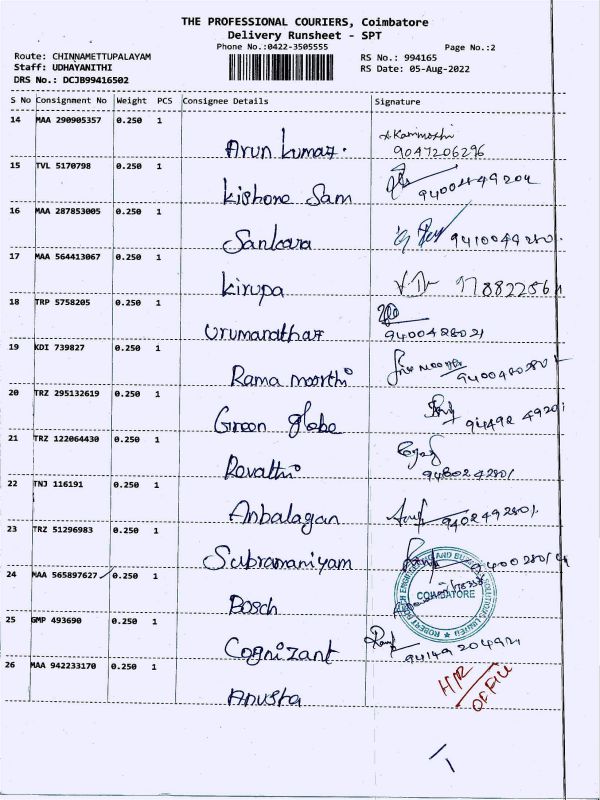 THE PROFESSIONAL COURIERS, Coimbatore
Delivery Runsheet - SPT
Phone No.:0422-3505555
Page No.:2
Route: CHINNAMETTUPALAYAM
Staff: UDHAYANITHI
DRS No.: DCJB99416502
RS No.: 994165
RS Date: 05-Aug-2022
S No Consignment No Weight PCS Consignee Details Signature
14 MAA 290905357 0.250 1
Arun kumar.
9047206296
15 TVL 5170798 0.250 1
Kishore Sam
16 MAA 287853005 0.250 1
Sankara
17 MAA 564413067 0.250 1
Kirupa
18 TRP 5758205 0.250 1
Urumanathar
9400428021
19 KDI 739827 0.250 1
Rama moorthi
20 TRZ 295132619 0.250 1
Green globe
21 TRZ 122064430 0.250 1
Revathi
22 TNJ 116191 0.250 1
Anbalagan
23 TRZ 51296983 0.250 1
Subramaniyam
24 MAA 565897627 0.250 1
Bosch
COIMBATORE
25 GMP 493690 0.250 1
Cognizant
26 MAA 942233170 0.250 1
Anusha
H/R
OFFICE